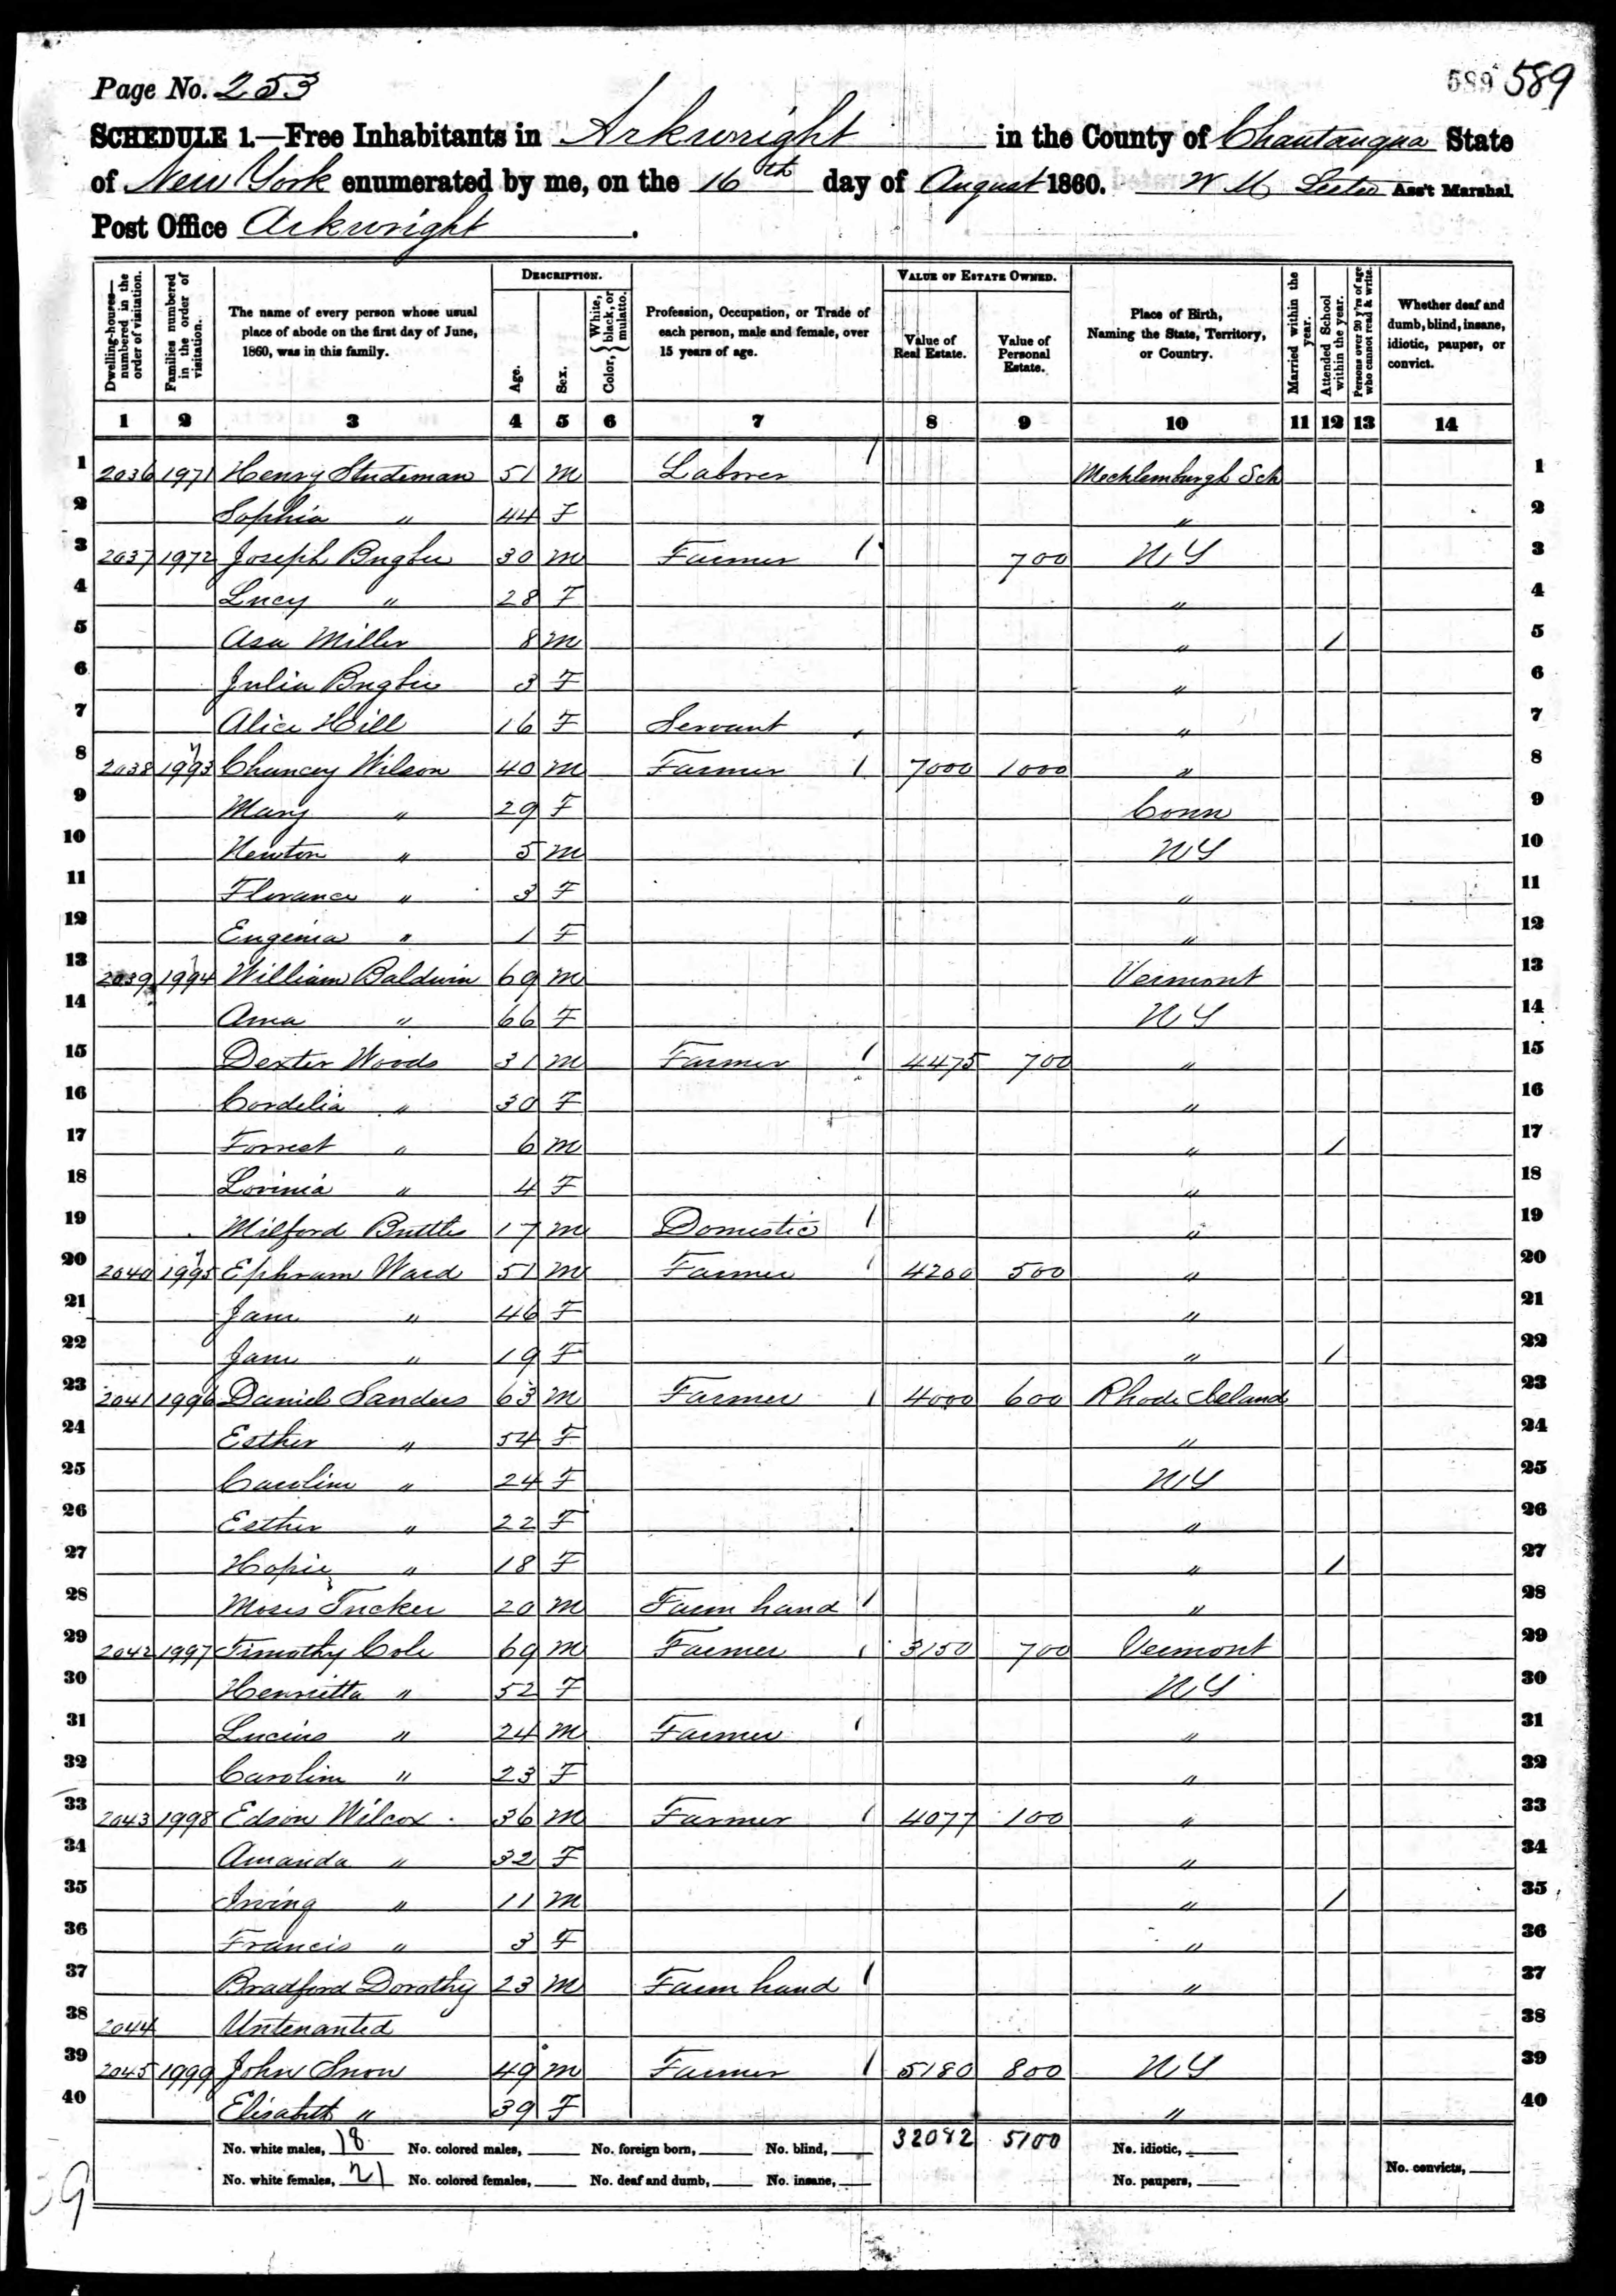 Page No. 253
589 589
SCHEDULE 1.—Free Inhabitants in Arkwright in the County of Chautauqua State
of New York enumerated by me, on the 16th day of August 1860. W M Ass't Marshal.
Post Office Arkwright.
DESCRIPTION. VALUE OF ESTATE OWNED.
Dwelling-houses—numbered in the order of visitation. Families numbered in the order of visitation. The name of every person whose usual place of abode on the first day of June, 1860, was in this family. Age. Sex. Color, { White, black, or mulatto. Profession, Occupation, or Trade of each person, male and female, over 15 years of age. Value of Real Estate. Value of Personal Estate. Place of Birth, Naming the State, Territory, or Country. Married within the year. Attended School within the year. Persons over 20 y'rs of age who cannot read & write. Whether deaf and dumb, blind, insane, idiotic, pauper, or convict.
1 2 3 4 5 6 7 8 9 10 11 12 13 14
1 2036 1971 Henry Studeman 51 M Laborer / Mecklemburgh Sch 1
2 Sophia " 44 F " 2
3 2037 1972 Joseph Bugbee 30 M Farmer / 700 NY 3
4 Lucy " 28 F " 4
5 Asa Miller 8 M " / 5
6 Julia Bugbee 3 F " 6
7 Alice Hill 16 F Servant " 7
8 2038 1993 Chancey Wilson 40 M Farmer / 7000 1000 " 8
9 Mary " 29 F Conn 9
10 Newton " 5 M NY 10
11 Florance " 3 F " 11
12 Eugenia " 1 F " 12
13 2039 1994 William Baldwin 69 M Vermont 13
14 Ama " 66 F NY 14
15 Dexter Woods 31 M Farmer / 4475 700 " 15
16 Cordelia " 30 F " 16
17 Forrest " 6 M " / 17
18 Lovinia " 4 F " 18
19 Milford Buttles 17 M Domestic / " 19
20 2040 1995 Ephram Ward 51 M Farmer / 4200 500 " 20
21 Jane " 46 F " 21
22 Jane " 19 F " / 22
23 2041 1996 Daniel Sanders 63 M Farmer / 4000 600 Rhode Island 23
24 Esther " 54 F " 24
25 Caroline " 24 F NY 25
26 Esther " 22 F " 26
27 Hopie " 18 F " / 27
28 Moses Tucker 20 M Farm hand / " 28
29 2042 1997 Timothy Cole 69 M Farmer / 3150 700 Vermont 29
30 Henrietta " 52 F NY 30
31 Lucius " 24 M Farmer / " 31
32 Caroline " 23 F " 32
33 2043 1998 Edson Wilcox 36 M Farmer / 4077 100 " 33
34 Amanda " 32 F " 34
35 Irving " 11 M " / 35
36 Francis " 3 F " 36
37 Bradford Dorothy 23 M Farm hand / " 37
38 2044 Untenanted 38
39 2045 1999 John Snow 49 M Farmer / 5180 800 NY 39
40 Elisabeth " 39 F " 40
No. white males, 18 No. colored males, No. foreign born, No. blind, 32082 5100 No. idiotic,
No. white females, 21 No. colored females, No. deaf and dumb, No. insane, No. paupers, No. convicts,
39